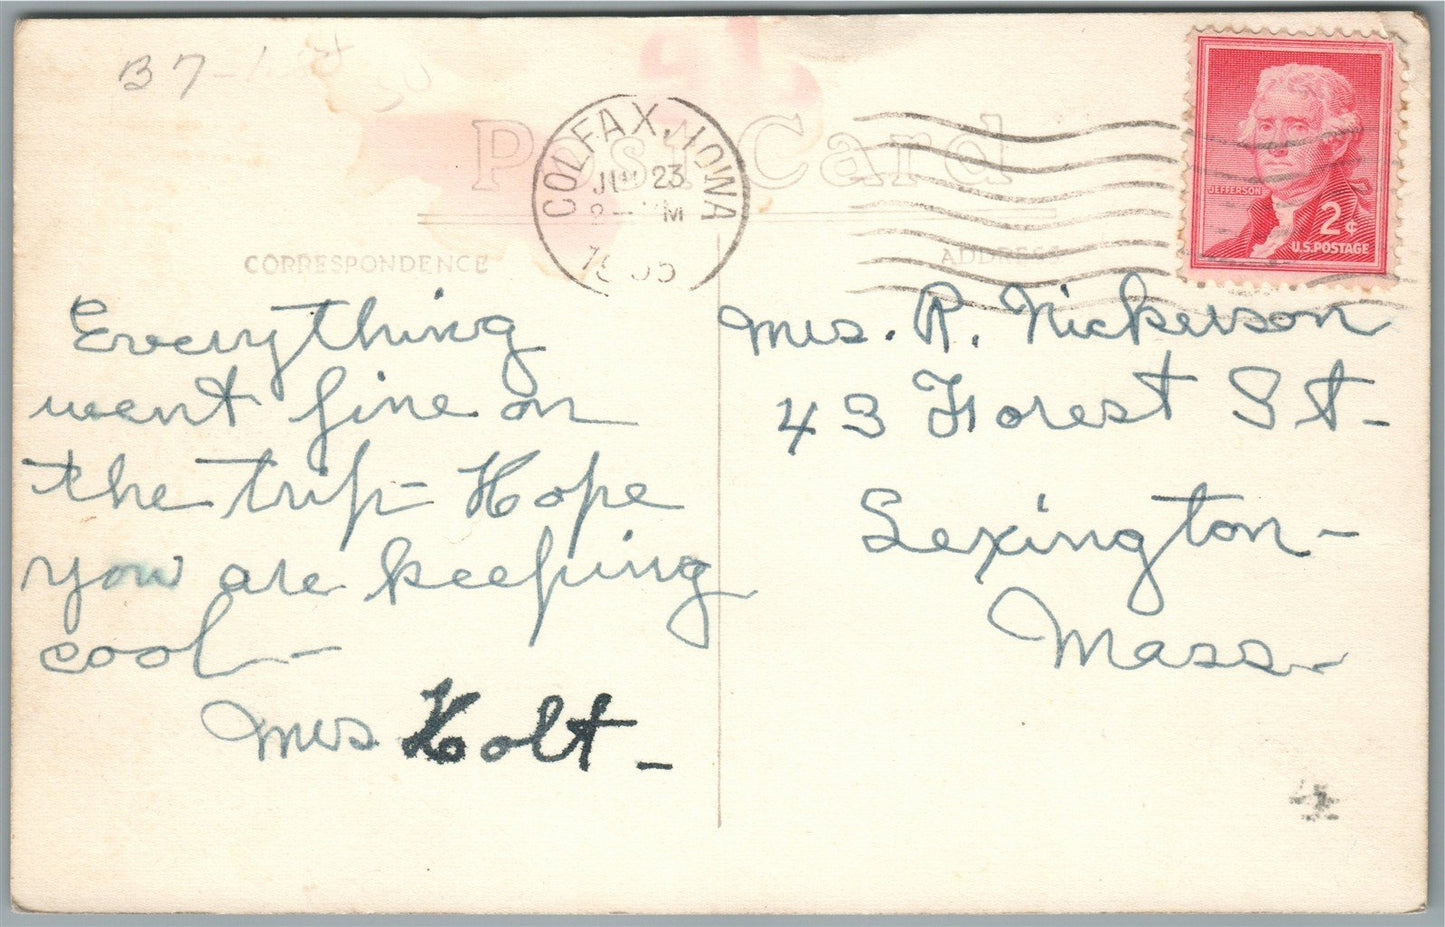 B7-
Post Card
COLFAX, IOWA
23
M
CORRESPONDENCE
ADDRESS
JEFFERSON
2¢
U.S. POSTAGE
Everything
went fine on
the trip - Hope
you are keeping
cool -
Mrs Holt -
Mrs. R. Nickerson
43 Forest St -
Lexington -
Mass -